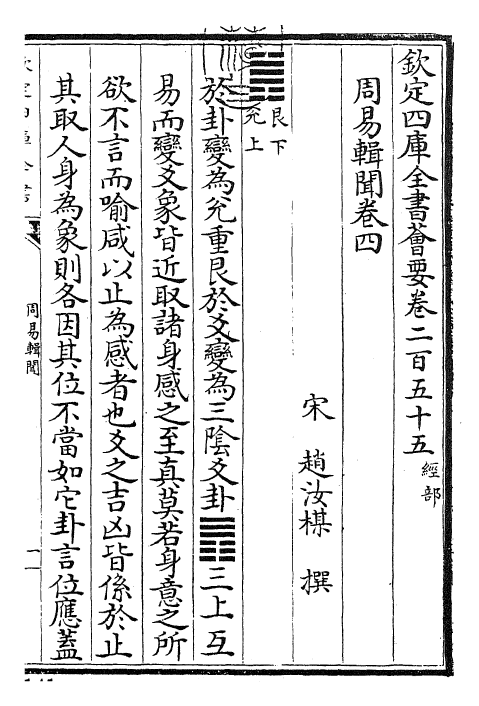 欽定四庫全書薈要卷二百五十五 經部
周易輯聞卷四
宋 趙汝楳 撰
艮下
兌上
於卦變為兌重艮於爻變為三陰爻卦䷋三上互
易而變爻象皆近取諸身感之至真莫若身意之所
欲不言而喻咸以止為感者也爻之吉凶皆係於止
其取人身為象則各因其位不當如它卦言位應蓋
周易輯聞
一